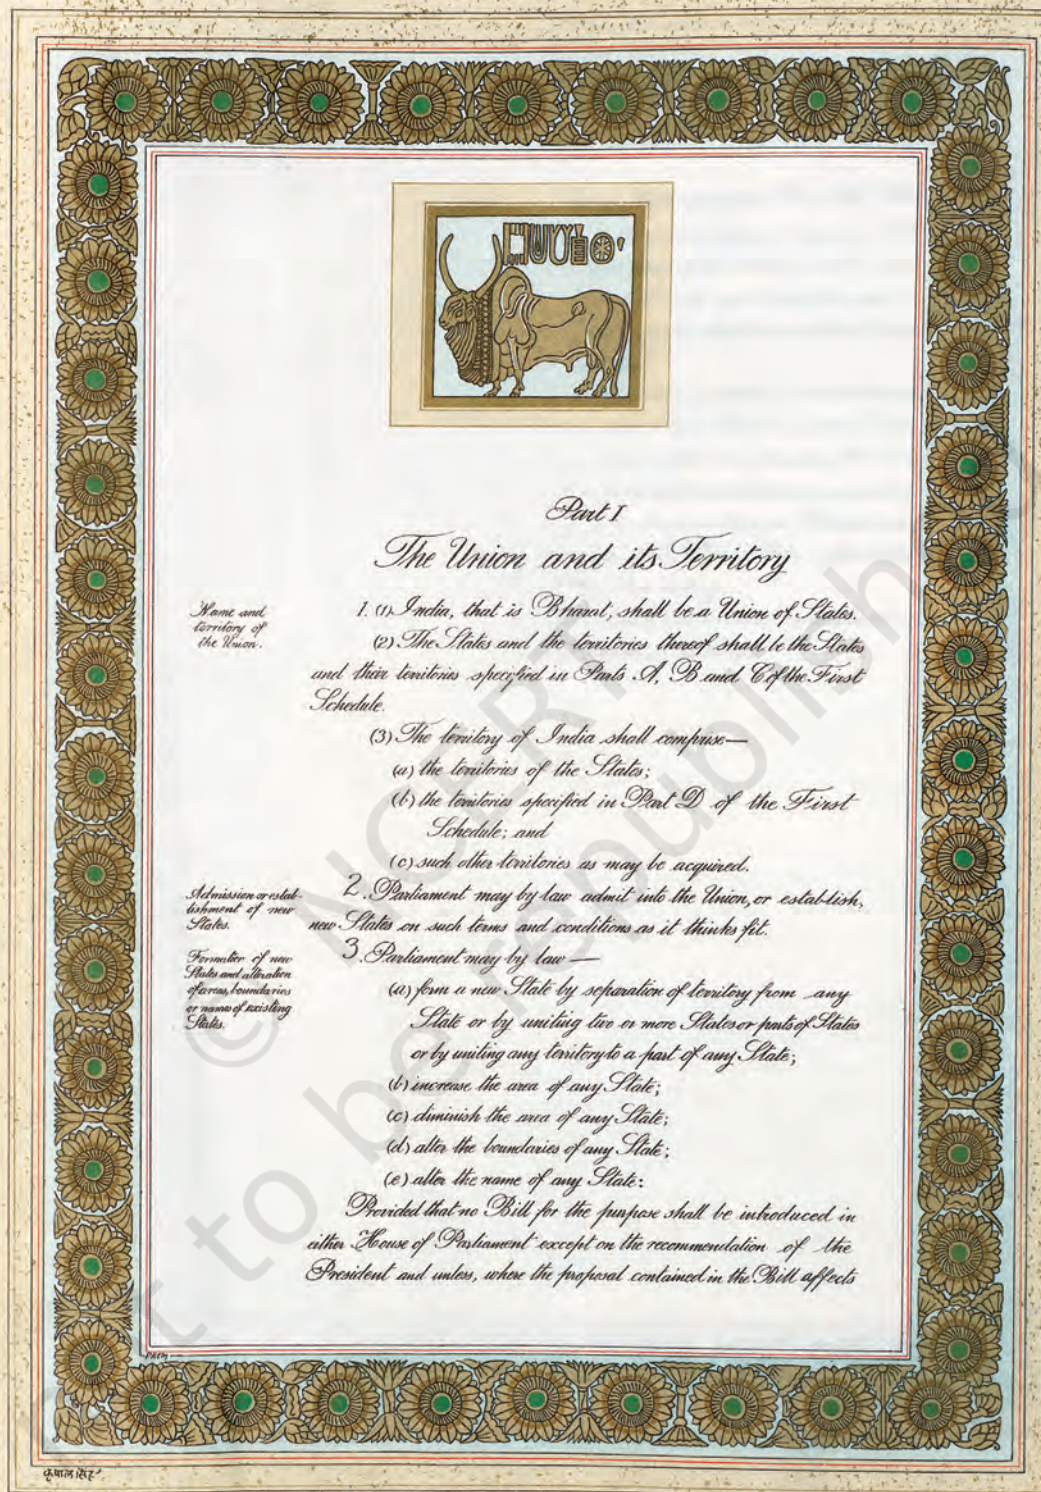 Part I
The Union and its Territory
Name and
territory of
the Union.
1. (1) India, that is Bharat, shall be a Union of States.
(2) The States and the territories thereof shall be the States
and their territories specified in Parts A, B and C of the First
Schedule.
(3) The territory of India shall comprise—
(a) the territories of the States;
(b) the territories specified in Part D of the First
Schedule; and
(c) such other territories as may be acquired.
Admission or estab-
lishment of new
States.
2. Parliament may by law admit into the Union, or establish,
new States on such terms and conditions as it thinks fit.
Formation of new
States and alteration
of areas, boundaries
or names of existing
States.
3. Parliament may by law —
(a) form a new State by separation of territory from any
State or by uniting two or more States or parts of States
or by uniting any territory to a part of any State;
(b) increase the area of any State;
(c) diminish the area of any State;
(d) alter the boundaries of any State;
(e) alter the name of any State:
Provided that no Bill for the purpose shall be introduced in
either House of Parliament except on the recommendation of the
President and unless, where the proposal contained in the Bill affects
कृपाल सिंह